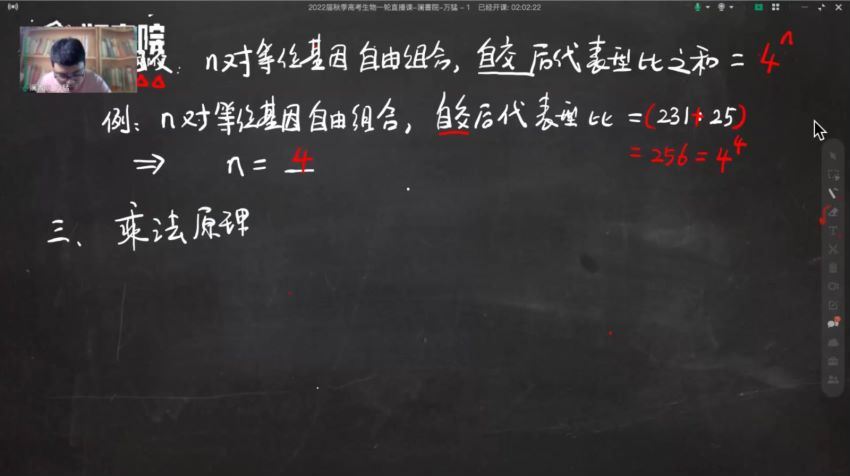 2022届秋季高考生物一轮直播课-澜書院-万猛 - 1 已经开课: 02:02:22
院
n对等位基因自由组合, 自交后代表型比之和 = 4ⁿ
例: n对等位基因自由组合, 自交后代表型比 = (231:25)
⇒ n = 4
= 256 = 4⁴
三、乘法原理